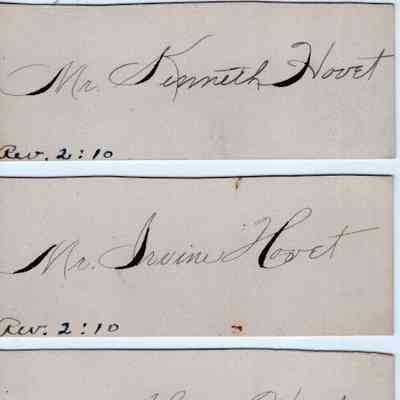 Mr. Kenneth Hovet
Rev. 2:10
Mr. Irvine Hovet
Rev. 2:10